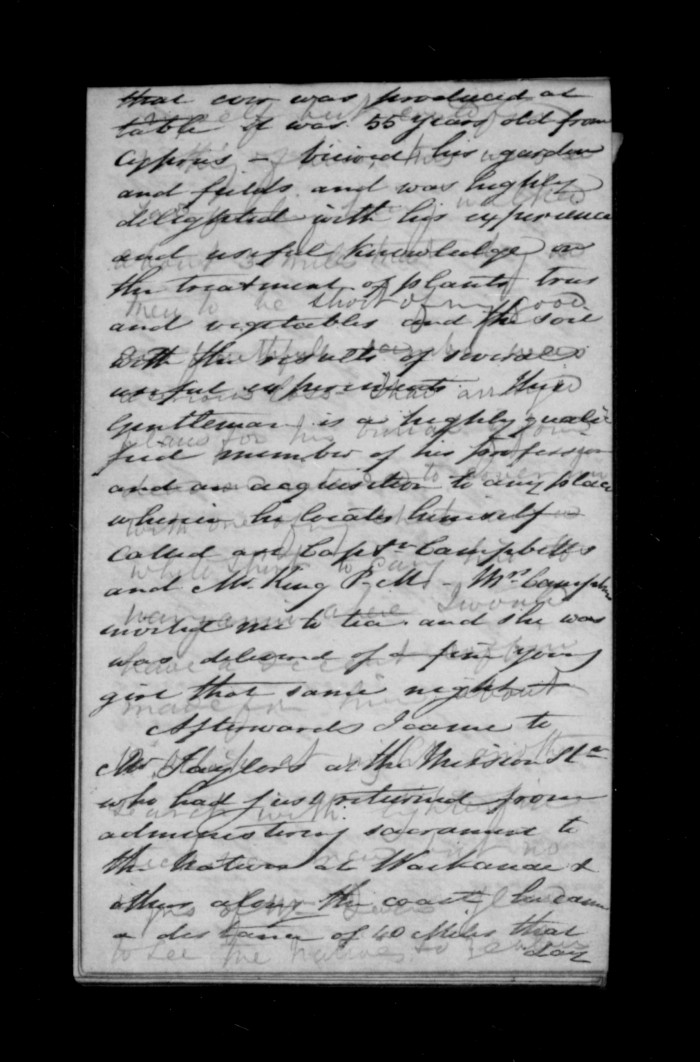 that ever was produced at
table it was 55 years old from
Cyprus – viewed his garden
and fields and was highly
delighted with his experience
and useful knowledge on
the treatment of plants trees
and vegetables and the soil
with the results of several
useful experiments – this
Gentleman is a highly quali
fied member of his profession
and an acquisition to any place
wherein he locates himself
Called at Captn Campbells
and Mr. King P.M. – Mrs Campbell
invited me to tea and she was
was delivered of a fine young
girl that same night
Afterwards I came to
Mr Taylors at the Mission Stn
who had just returned from
administering sacrament to
the Natives at &
others along the coast, he came
a distance of 40 Miles that
day